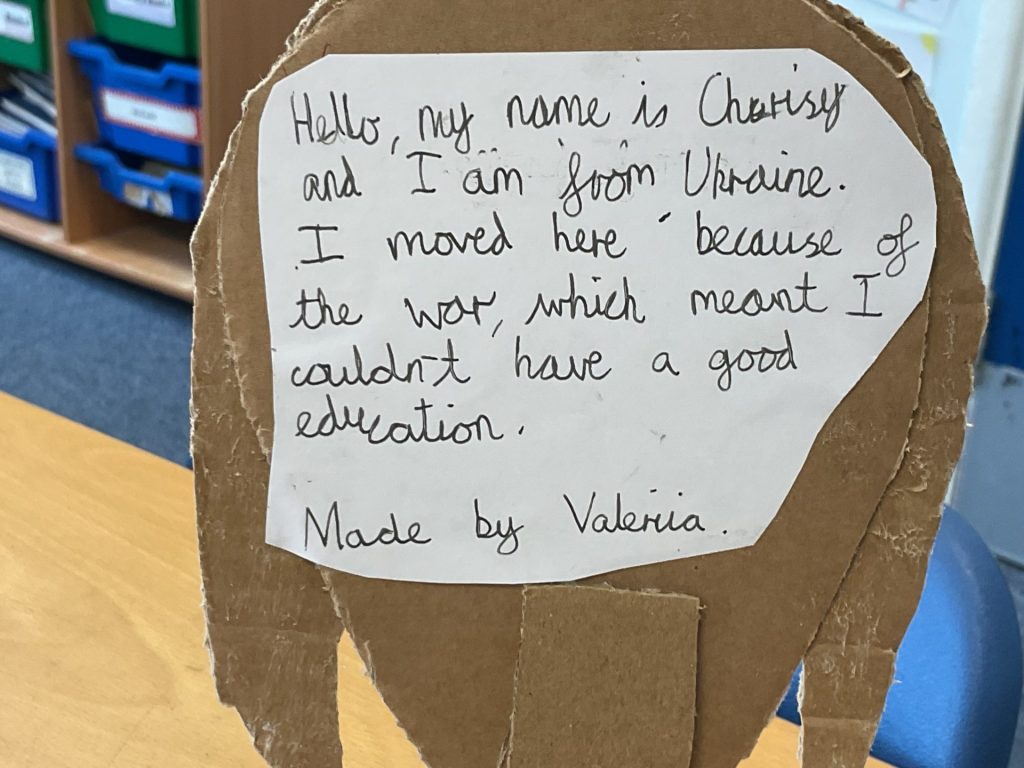 Hello, my name is Charisy
and I am from Ukraine.
I moved here because of
the war, which meant I
couldn't have a good
education.
Made by Valeriia.